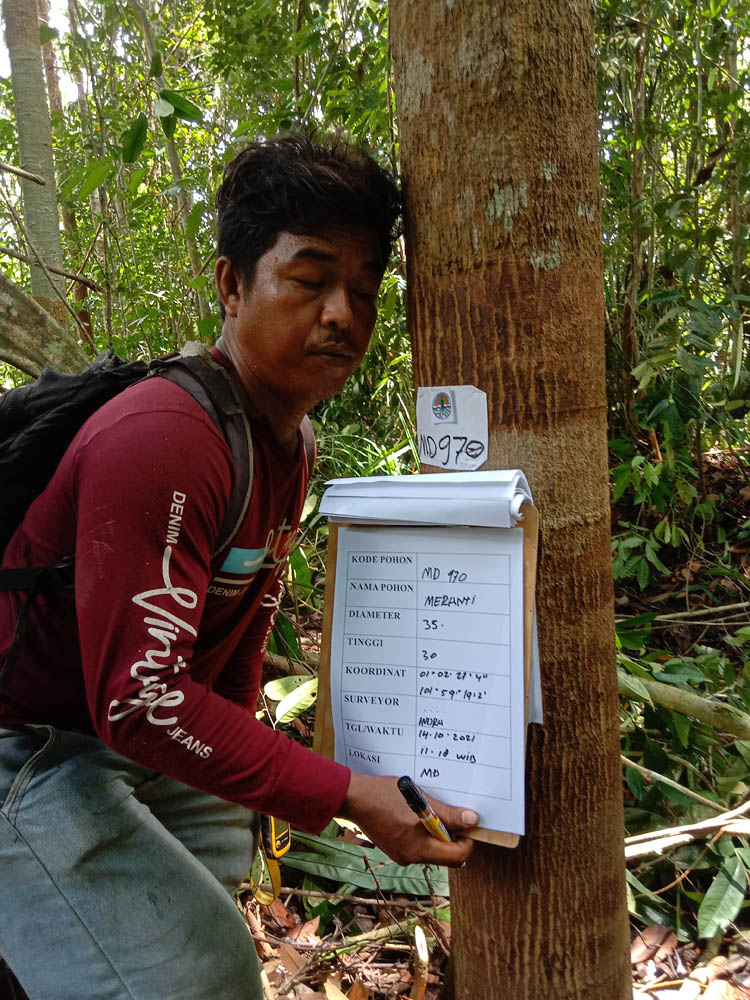 MD970
KODE POHON MD 970
NAMA POHON MERANTI
DIAMETER 35.
TINGGI 30
KOORDINAT 01° 02' 27' 4"
101° 59' 19' 2'
SURVEYOR ....
ANDRA
TGL/WAKTU 14.10.2021
11.18 WIB
LOKASI MD
DENIM
Vintage
JEANS